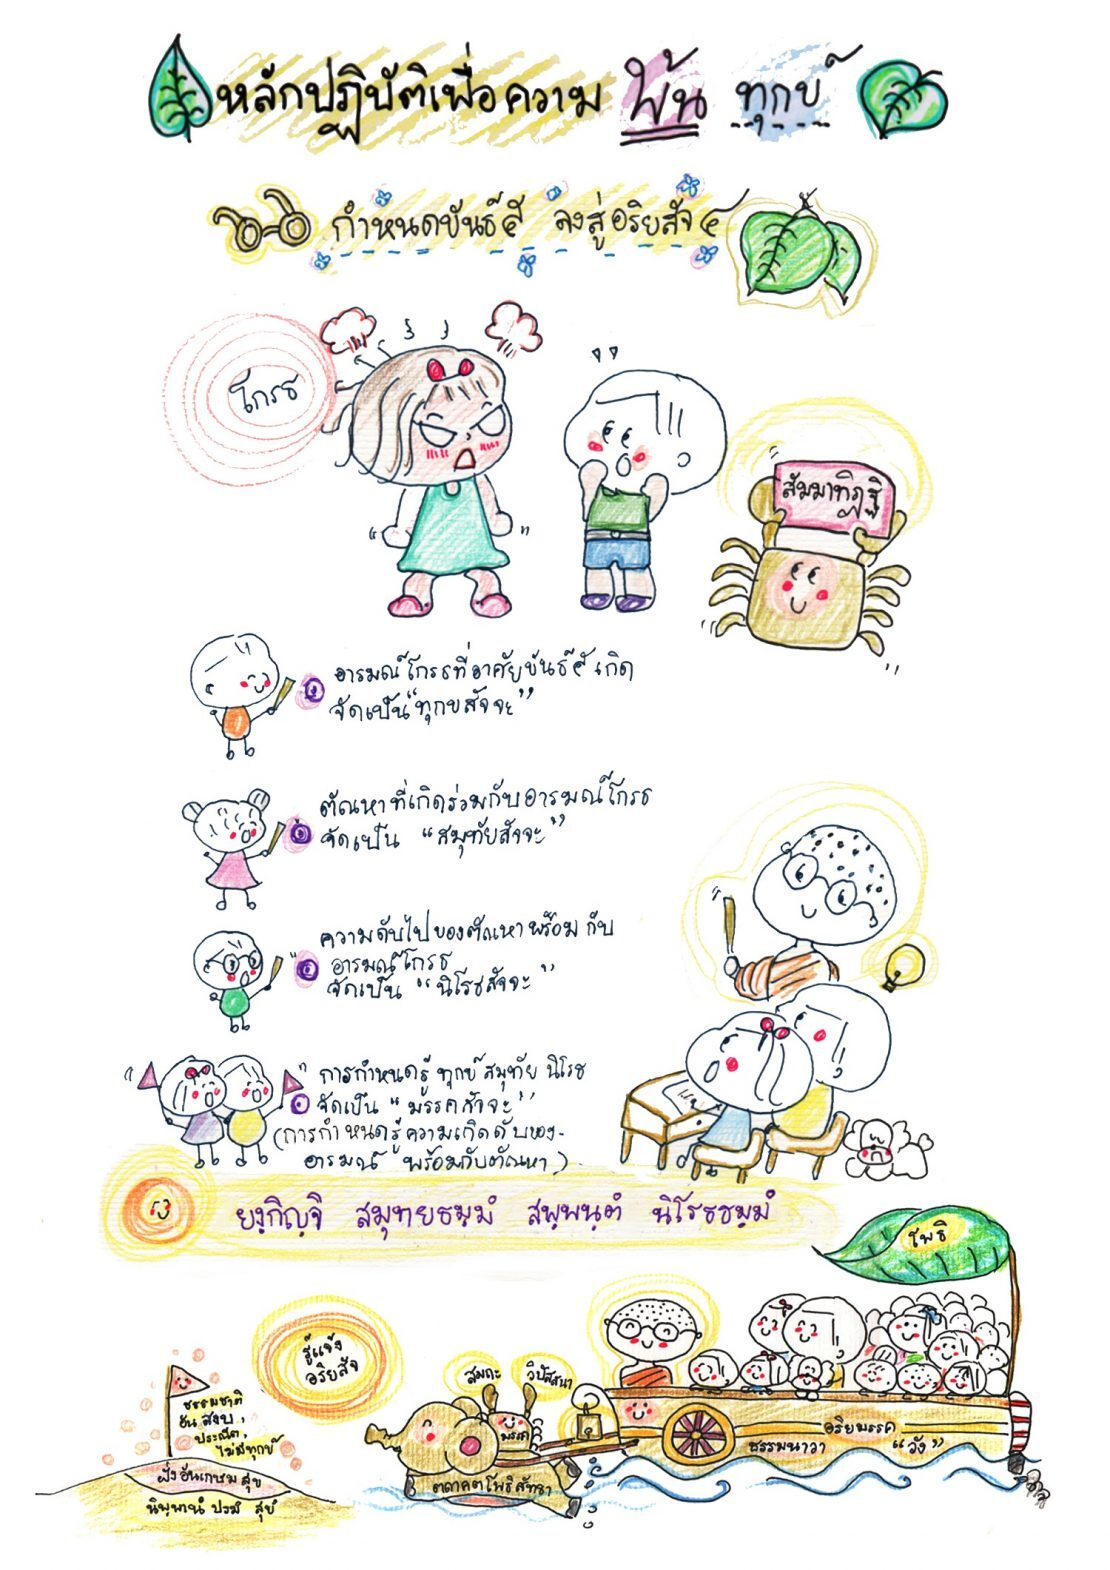 หลักปฏิบัติเพื่อความ พ้น ทุกข์
กำหนดขันธ์๕ ลงสู่อริยสัจ๔
โกรธ
สัมมาทิฏฐิ
อารมณ์โกรธที่อาศัยขันธ์๕เกิด
จัดเป็น "ทุกขสัจจะ"
ตัณหาที่เกิดร่วมกับอารมณ์โกรธ
จัดเป็น "สมุทัยสัจจะ"
ความดับไปของตัณหาพร้อมกับ
อารมณ์โกรธ
จัดเป็น "นิโรธสัจจะ"
การกำหนดรู้ ทุกข์ สมุทัย นิโรธ
จัดเป็น "มรรคสัจจะ"
(การกำหนดรู้ความเกิดดับของ-
อารมณ์ พร้อมกับตัณหา)
ยงฺกิญฺจิ สมุทยธมฺมํ สพฺพนฺตํ นิโรธธมฺมํ
โพธิ
รู้แจ้ง
อริยสัจ
สมถะ
วิปัสสนา
มรรค
ธรรมชาติ
อันสงบ,
ประณีต,
ไม่มีทุกข์
ฝั่งอันเกษมสุข
นิพฺพานํ ปรมํ สุขํ
ตถาคตโพธิสัทธา
อริยมรรค
ธรรมนาวา "วัง"